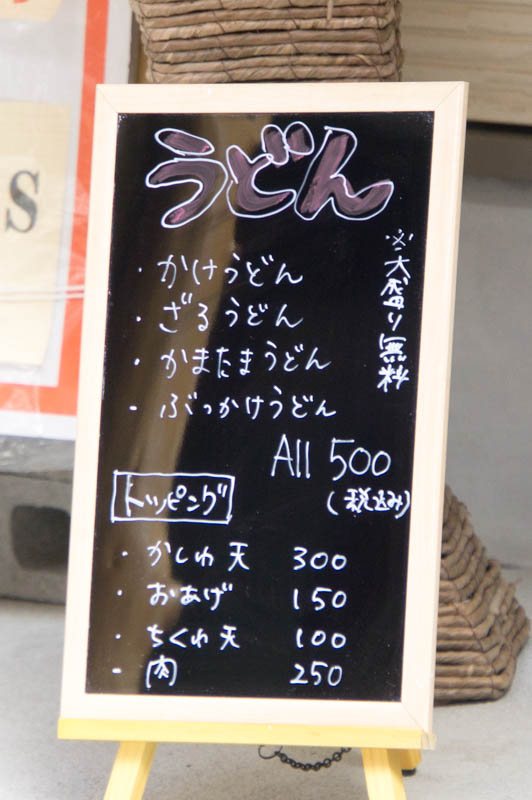 うどん
※大盛り無料
・かけうどん
・ざるうどん
・かまたまうどん
・ぶっかけうどん
All 500
(税込み)
トッピング
・かしわ天 300
・おあげ 150
・ちくわ天 100
・肉 250
S